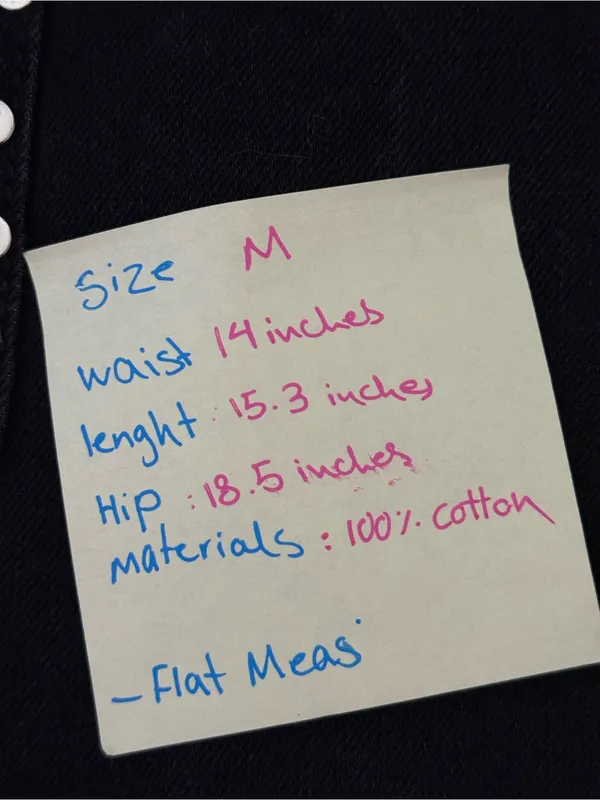 Size M
waist 14 inches
lenght : 15.3 inches
Hip : 18.5 inches
materials : 100% cotton
- Flat Meas